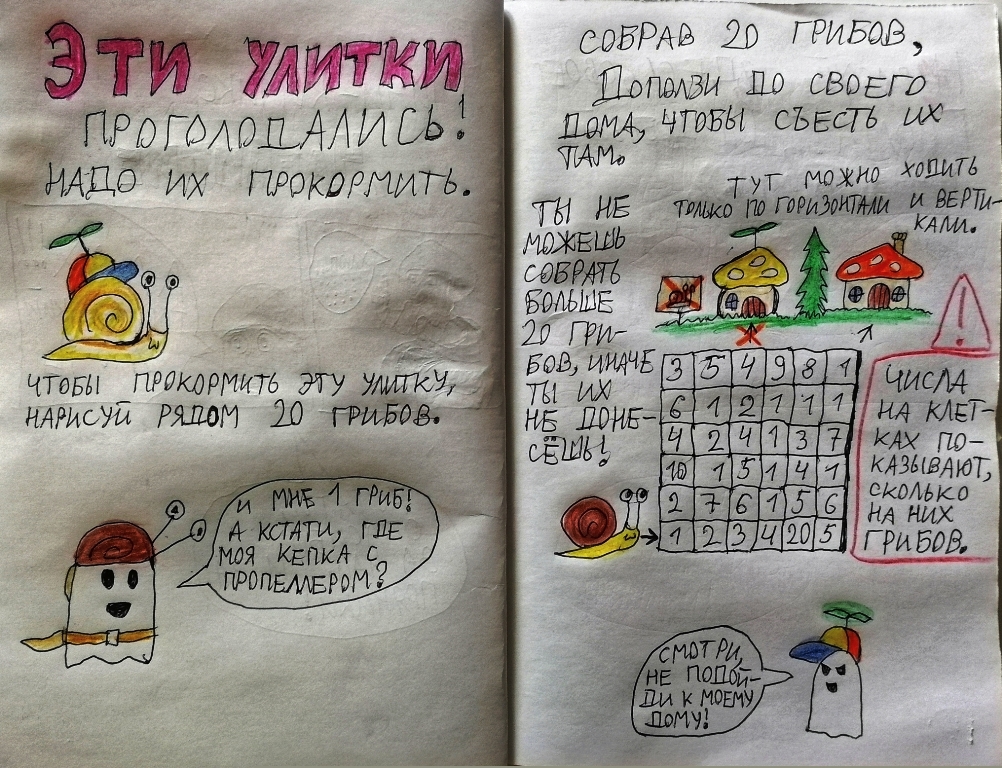 ЭТИ УЛИТКИ
ПРОГОЛОДАЛИСЬ!
НАДО ИХ ПРОКОРМИТЬ.
ЧТОБЫ ПРОКОРМИТЬ ЭТУ УЛИТКУ,
НАРИСУЙ РЯДОМ 20 ГРИБОВ.
И МНЕ 1 ГРИБ!
А КСТАТИ, ГДЕ
МОЯ КЕПКА С
ПРОПЕЛЛЕРОМ?
СОБРАВ 20 ГРИБОВ,
ДОПОЛЗИ ДО СВОЕГО
ДОМА, ЧТОБЫ СЪЕСТЬ ИХ
ТАМ.
ТУТ МОЖНО ХОДИТЬ
ТОЛЬКО ПО ГОРИЗОНТАЛИ И ВЕРТИ-
КАЛИ.
ТЫ НЕ
МОЖЕШЬ
СОБРАТЬ
БОЛЬШЕ
20 ГРИ-
БОВ, ИНАЧЕ
ТЫ ИХ
НЕ ДОНЕ-
СЁШЬ!
3 5 4 9 8 1
6 1 2 1 1 1
4 2 4 1 3 7
10 1 5 1 4 1
2 7 6 1 5 6
1 2 3 4 20 5
!
ЧИСЛА
НА КЛЕТ-
КАХ ПО-
КАЗЫВАЮТ,
СКОЛЬКО
НА НИХ
ГРИБОВ.
СМОТРИ,
НЕ ПОДОЙ-
ДИ К МОЕМУ
ДОМУ!